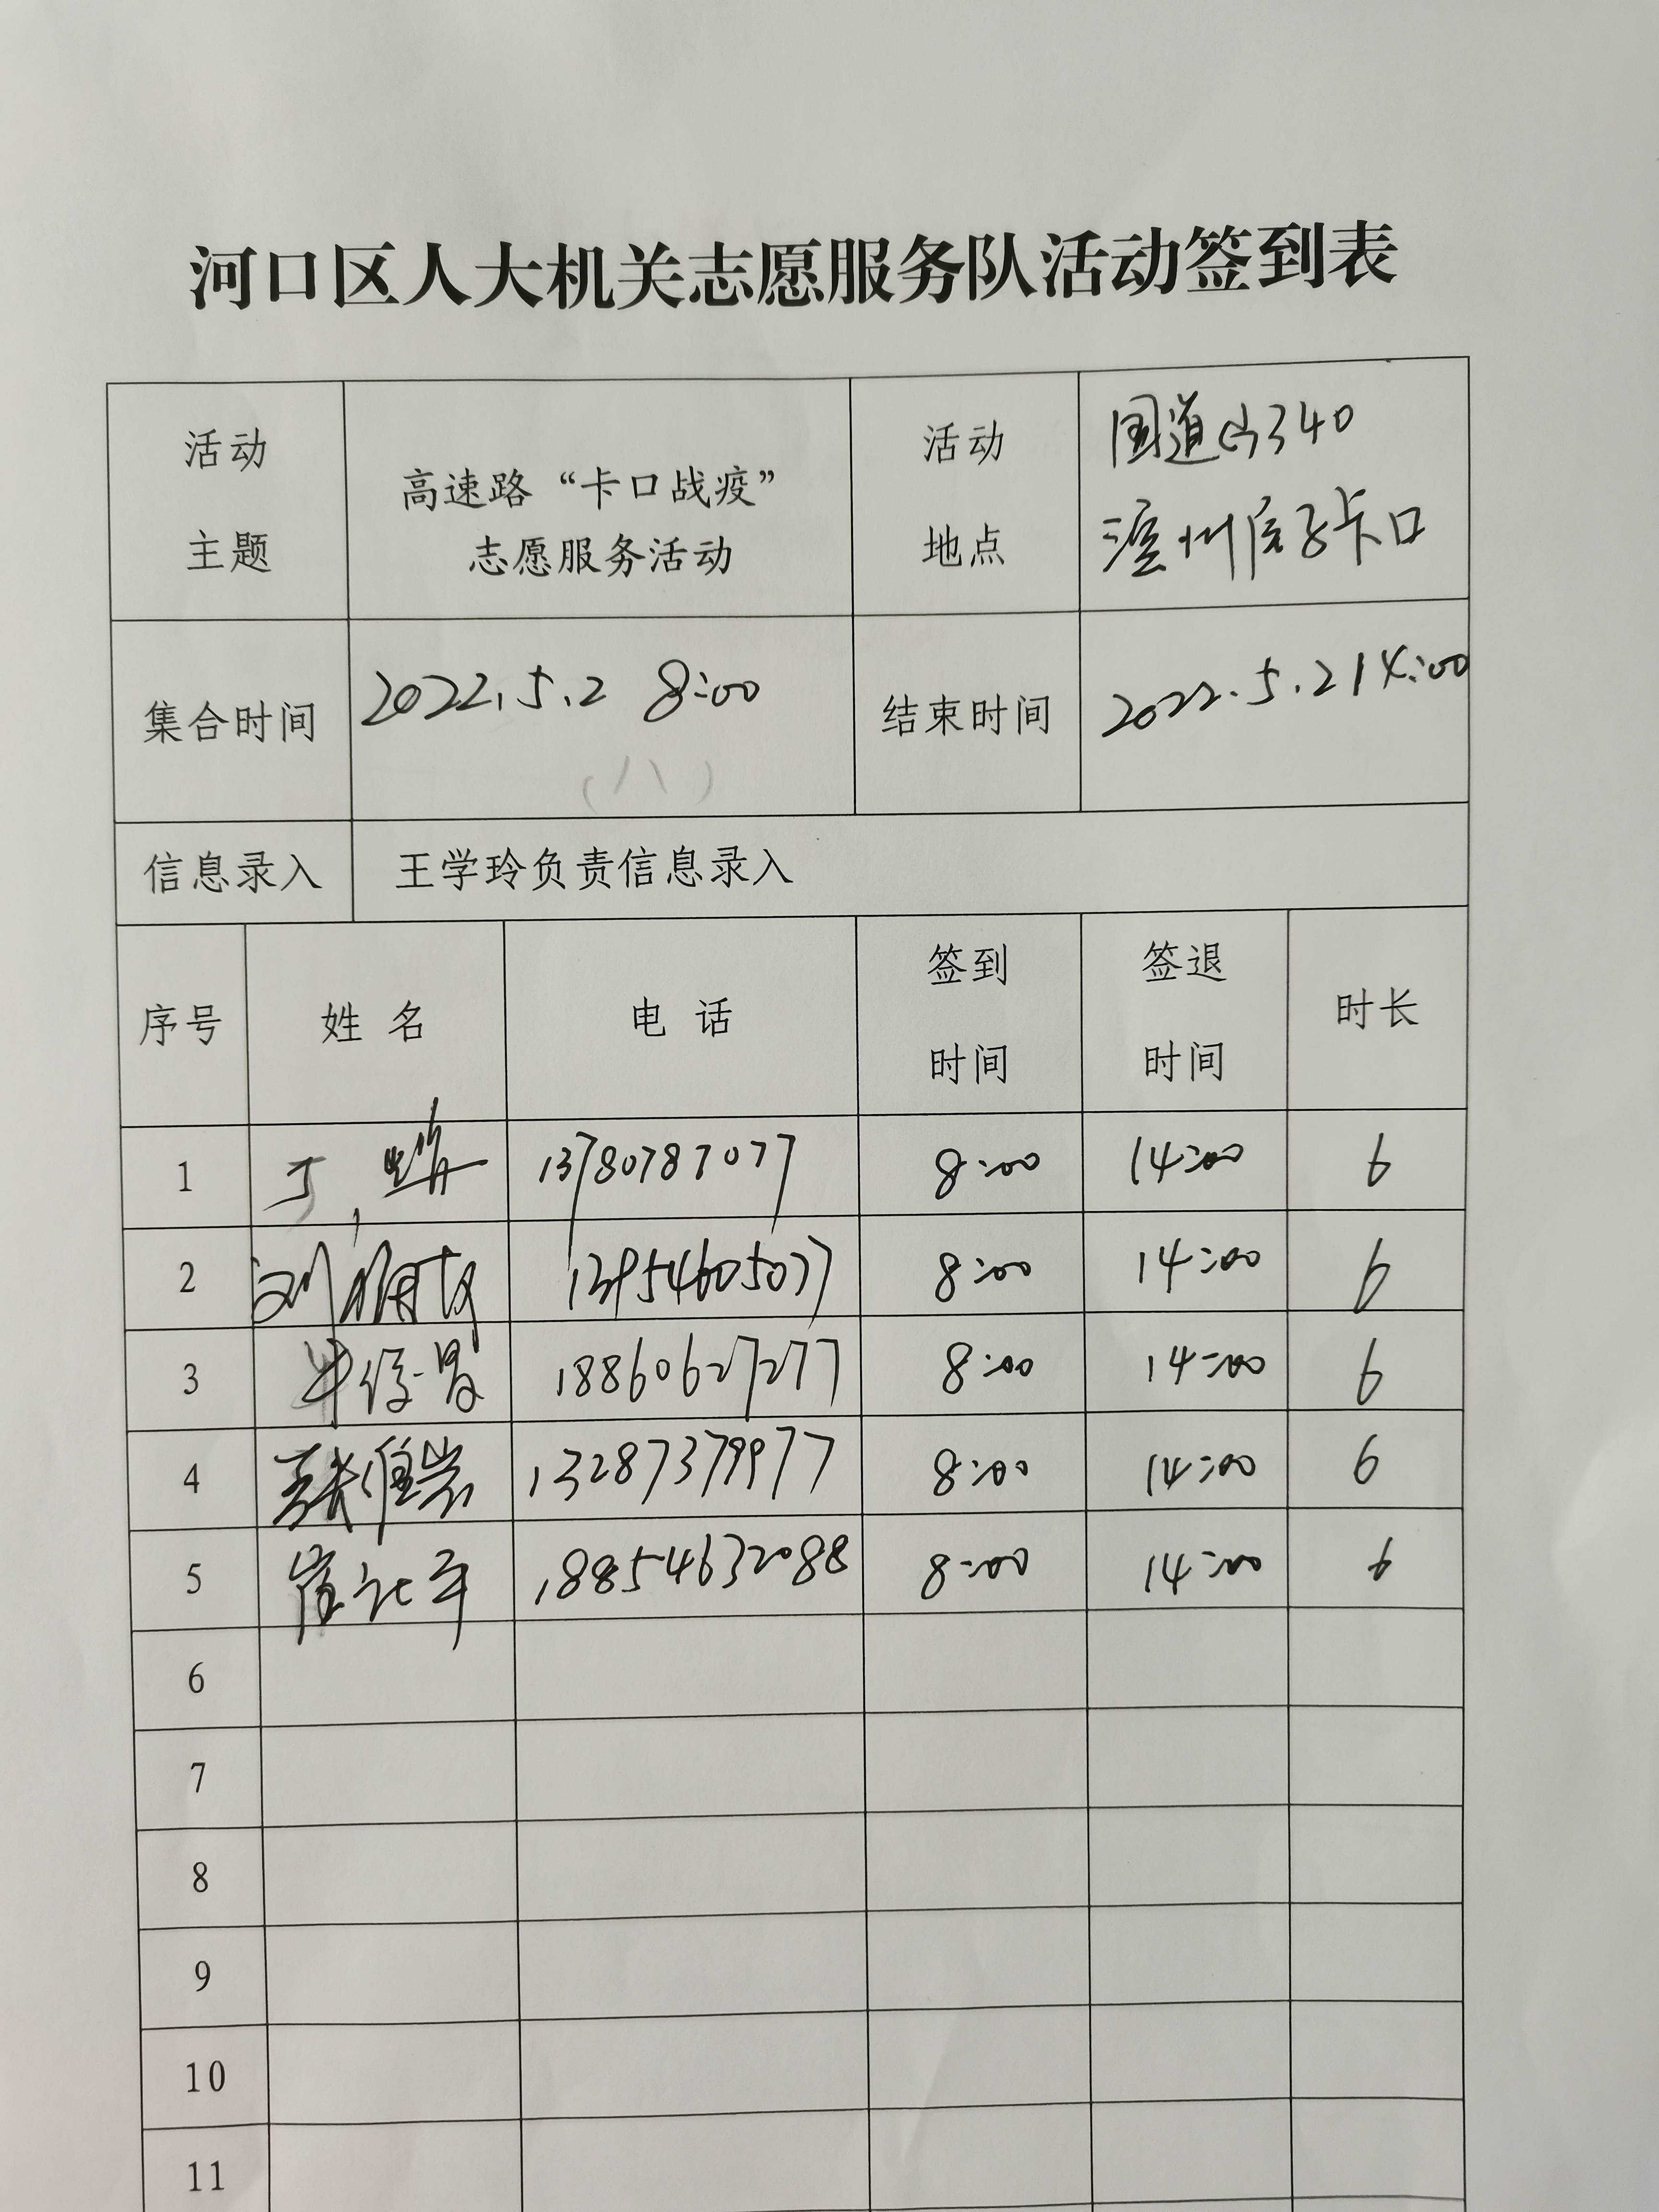 河口区人大机关志愿服务队活动签到表
活动主题 高速路“卡口战疫”志愿服务活动 活动地点 国道 340
卡口
集合时间 2022.5.2 8:00 结束时间 2022.5.2 14:00
(八)
信息录入 王学玲负责信息录入
序号 姓 名 电 话 签到时间 签退时间 时长
1 13780787077 8:00 14:00 6
2 刘 13954605077 8:00 14:00 6
3 18860627277 8:00 14:00 6
4 张维岩 13287379977 8:00 14:00 6
5 崔 18854632088 8:00 14:00 6
6
7
8
9
10
11